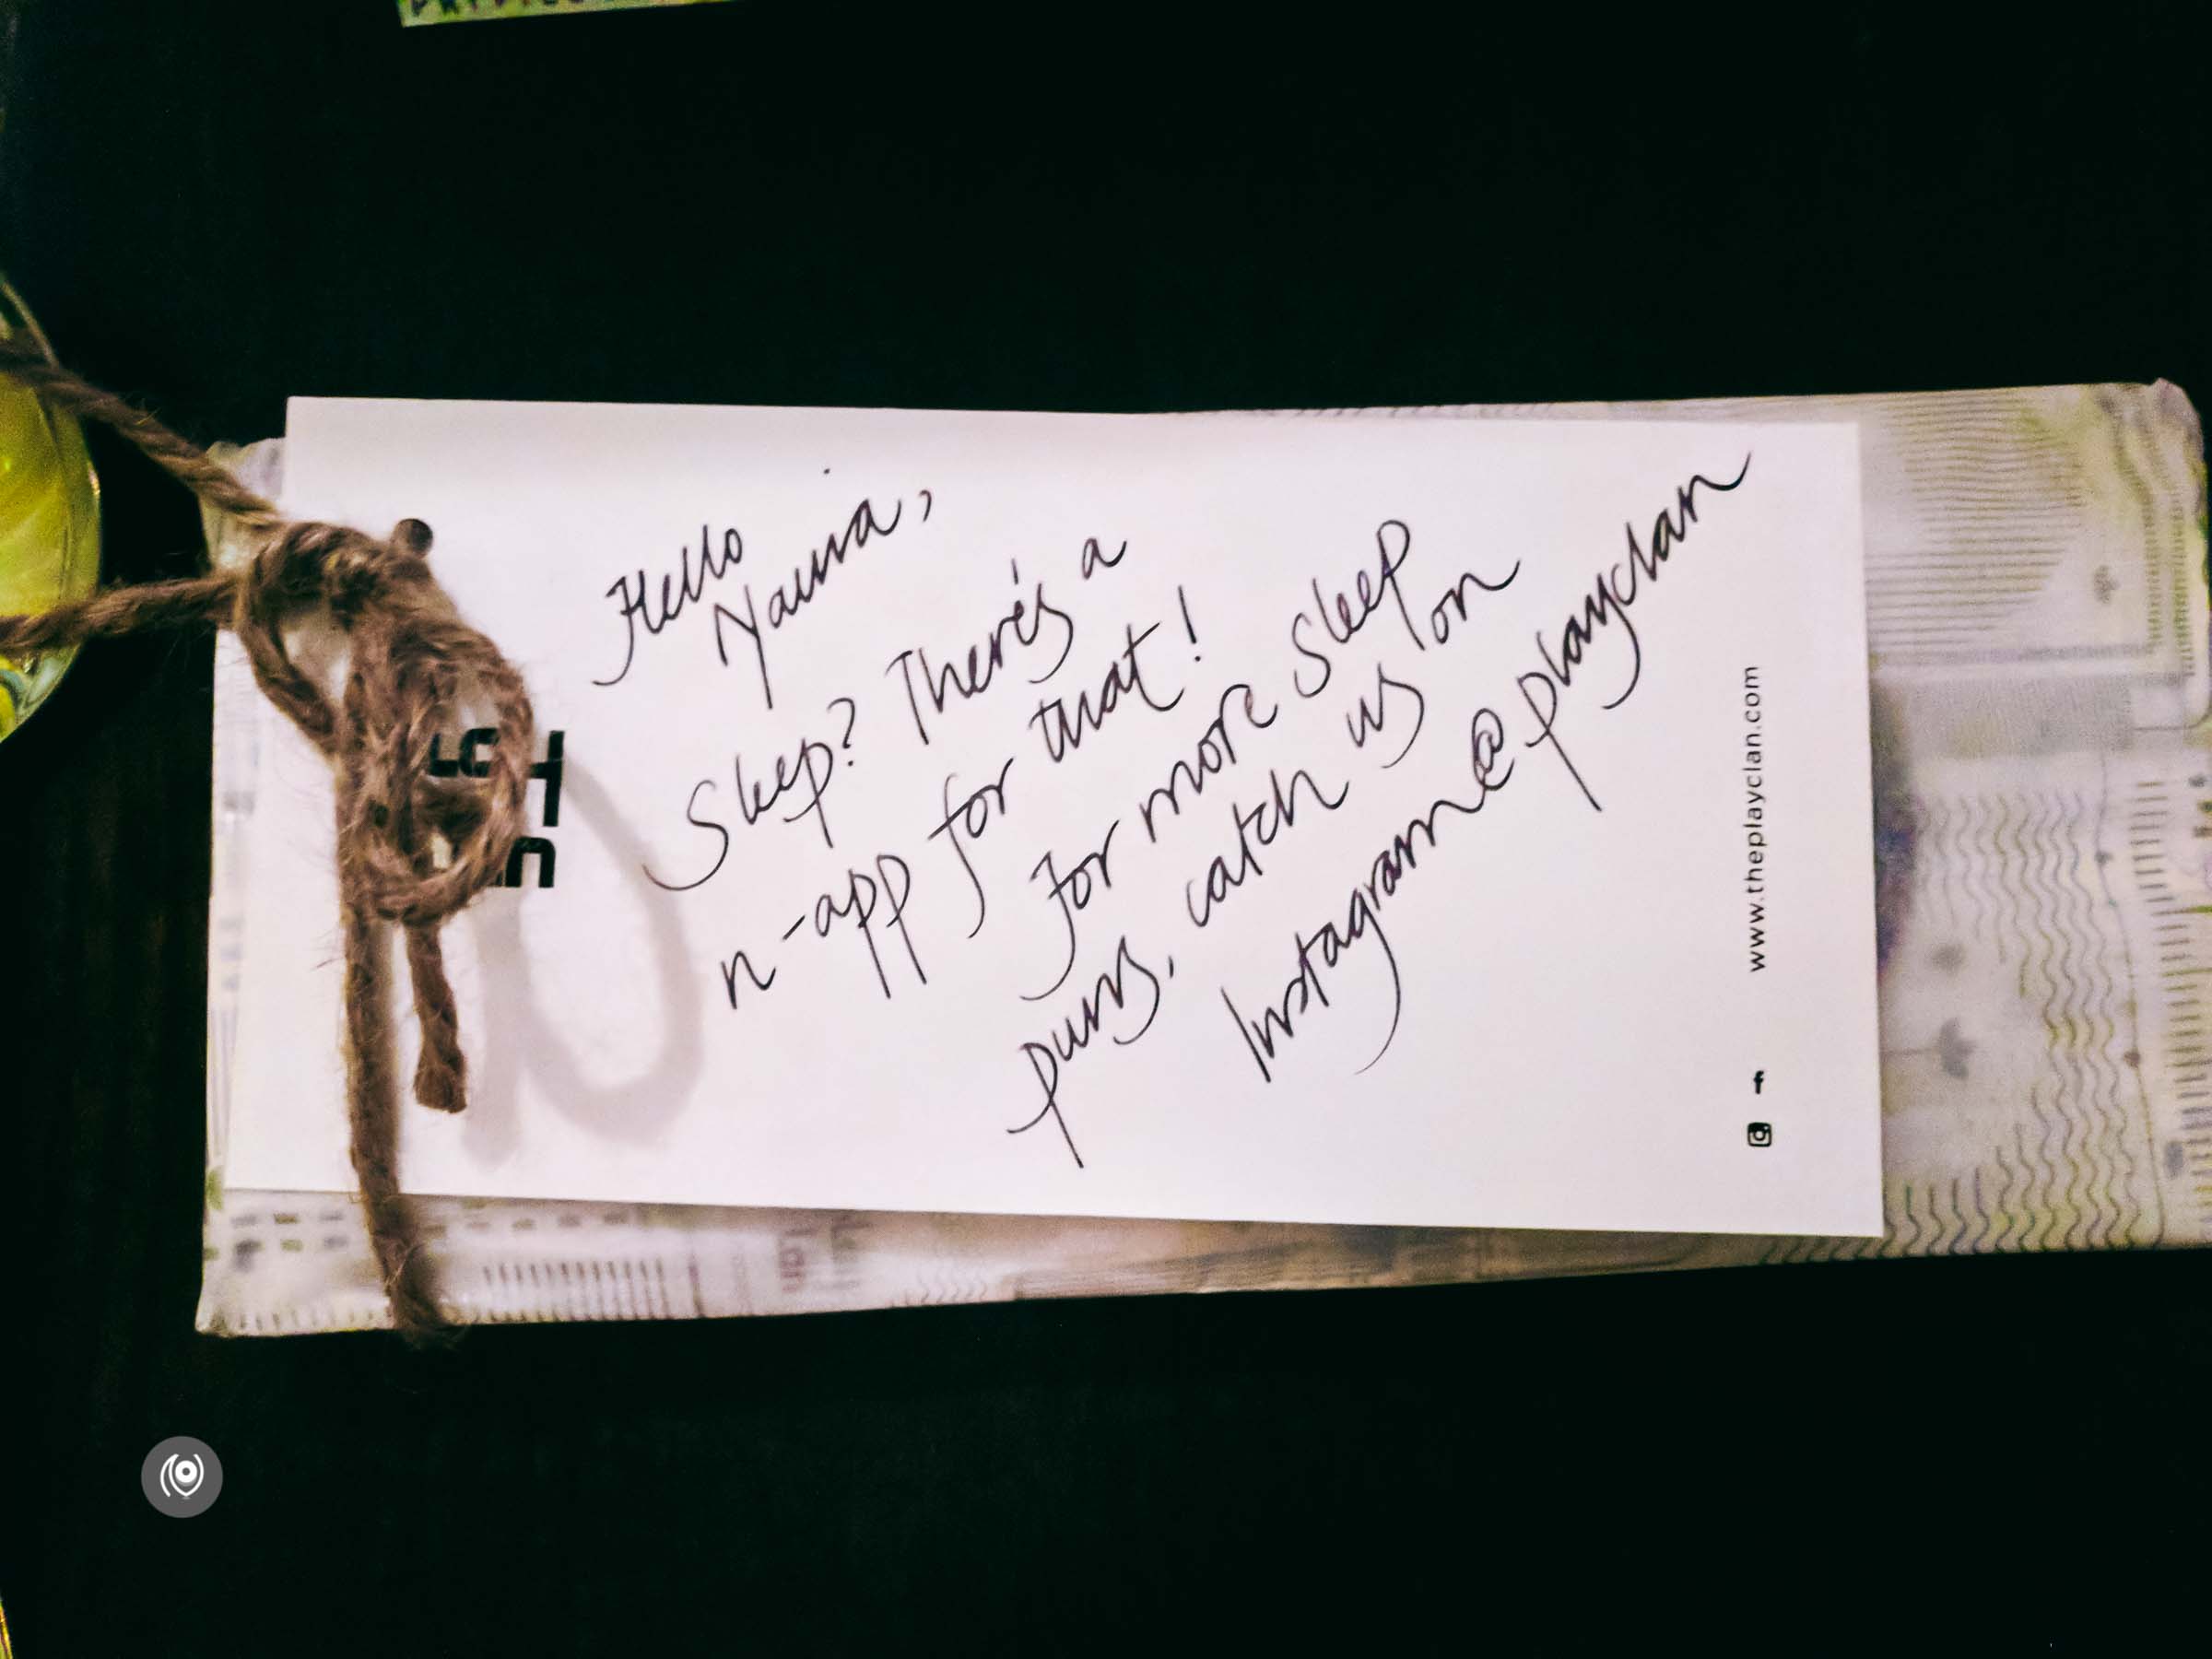 Hello
Naina,
Sleep? There's a
n-app for that!
For more sleep
puns, catch us on
Instagram@playclan
www.theplayclan.com